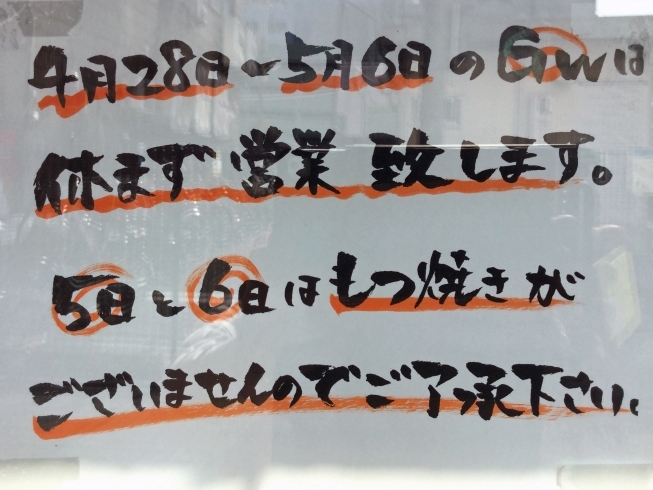 4月28日~5月6日のGWは
休まず営業致します。
5日と6日はもつ焼きが
ございませんのでご了承下さい、